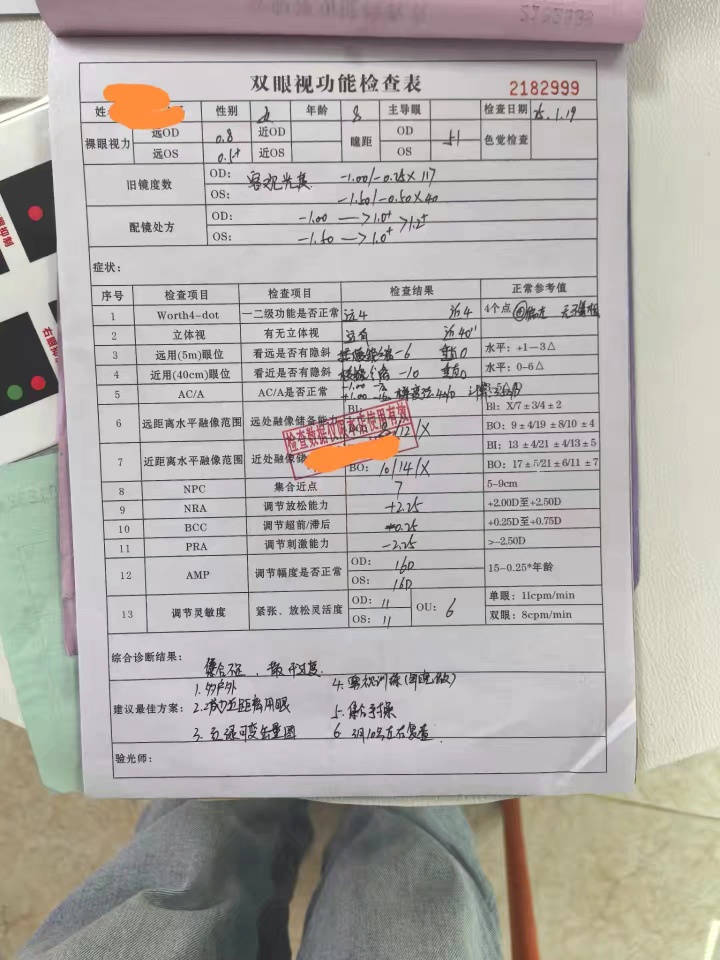 双眼视功能检查表
2182999
姓 性别 女 年龄 8 主导眼 检查日期 25.1.19
裸眼视力 远OD 0.8 近OD 瞳距 OD 51 色觉检查
远OS 近OS OS
旧镜度数 OD: 客观光度 -1.00/-0.25×117
OS: -1.50/-0.50×40
配镜处方 OD: -1.00 —>1.0⁺ >1.2⁺
OS: -1.50 —>1.0⁺
症状:
序号 检查项目 检查目的 检查结果 正常参考值
1 Worth4-dot 一二级功能是否正常 远4 近4 4个点
2 立体视 有无立体视 远有 近40"
3 远用(5m)眼位 看远是否有隐斜 -6 垂直0 水平: +1—3△
4 近用(40cm)眼位 看近是否有隐斜 -10 垂直0 水平: 0-6△
5 AC/A AC/A是否正常
6 远距离水平融像范围 远处融像储备能力 BI: BI: X/7±3/4±2
/12/X BO: 9±4/19±8/10±4
7 近距离水平融像范围 近处融像储 BI: 13±4/21±4/13±5
BO: 10/14/X BO: 17±5/21±6/11±7
检查数据仅限本店使用有效
8 NPC 集合近点 7 5-9cm
9 NRA 调节放松能力 +2.25 +2.00D至+2.50D
10 BCC 调节超前/滞后 +0.25D至+0.75D
11 PRA 调节刺激能力 -2.25 >-2.50D
12 AMP 调节幅度是否正常 OD: 16D 15-0.25*年龄
OS: 16D
13 调节灵敏度 紧张、放松灵活度 OD: 11 OU: 6 单眼: 11cpm/min
OS: 11 双眼: 8cpm/min
综合诊断结果: 集合不足, 散开过度
1.多户外 4.
建议最佳方案: 2.减少近距离用眼 5.集合手操
3.红绿可变矢量图 6. 3月10号左右复查
验光师: